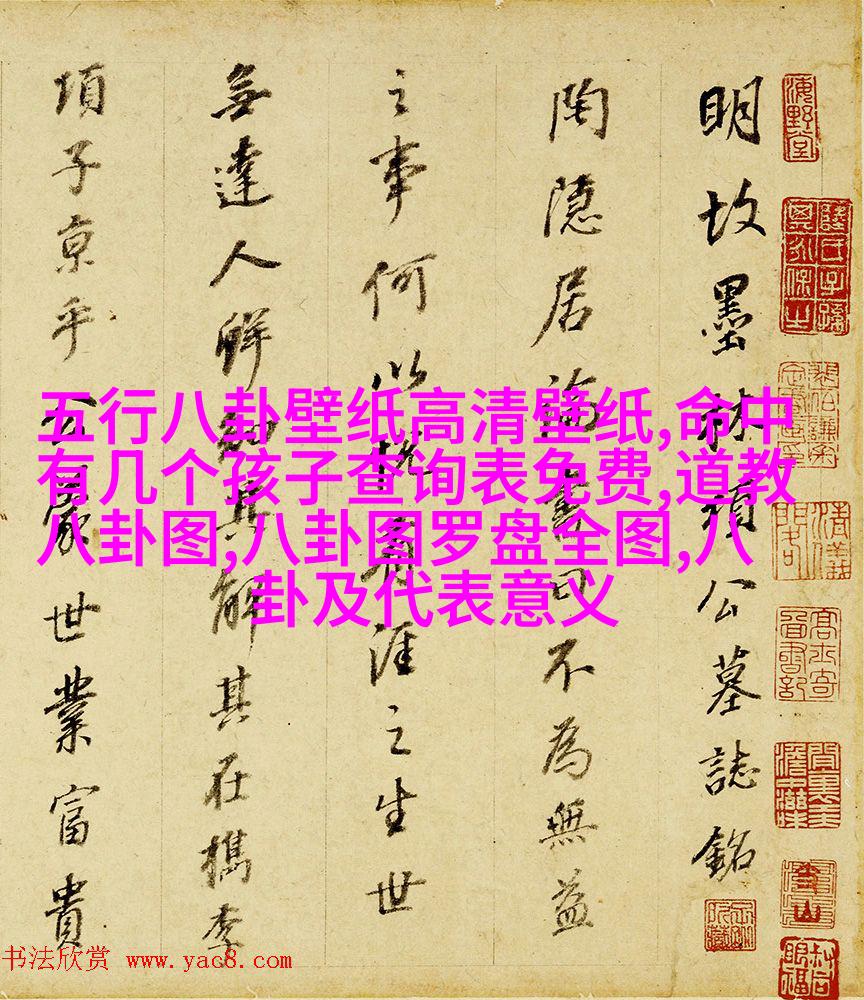 五行八卦壁纸高清壁纸,命中
有几个孩子查询表免费,道教
八卦图,八卦图罗盘全图,八
卦及代表意义
明故墨林項公墓誌銘
陶隱居論書曰不為無益
之事何以悅有涯之生世
無達人鮮知其解其在檇李
項子京乎公家世業富貴
海野堂
书法欣赏 www.yac8.com